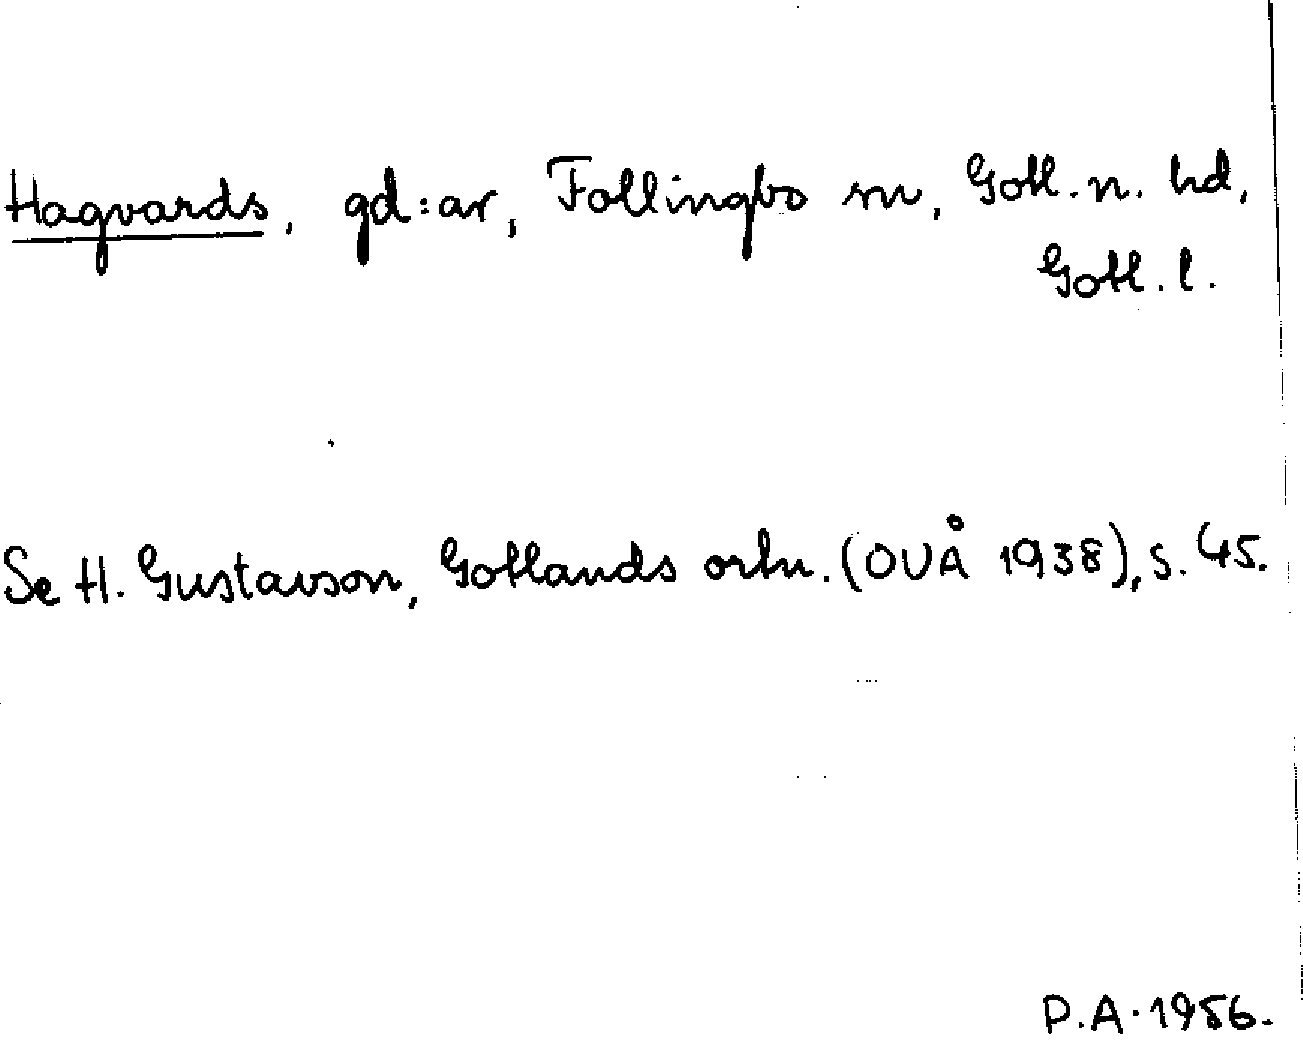 Hagvards, gd:ar, Follingbo sn, Gotl. n. hd,
Gotl. l.
Se H. Gustavson, Gotlands ortn. (OUÅ 1938), s. 45.
P.A. 1956.